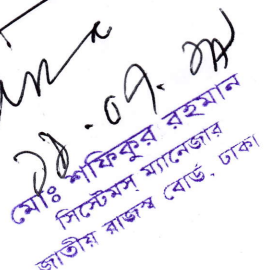 ২৪.০৭.
মোঃ শফিকুর রহমান
সিস্টেমস্ ম্যানেজার
জাতীয় রাজস্ব বোর্ড, ঢাকা